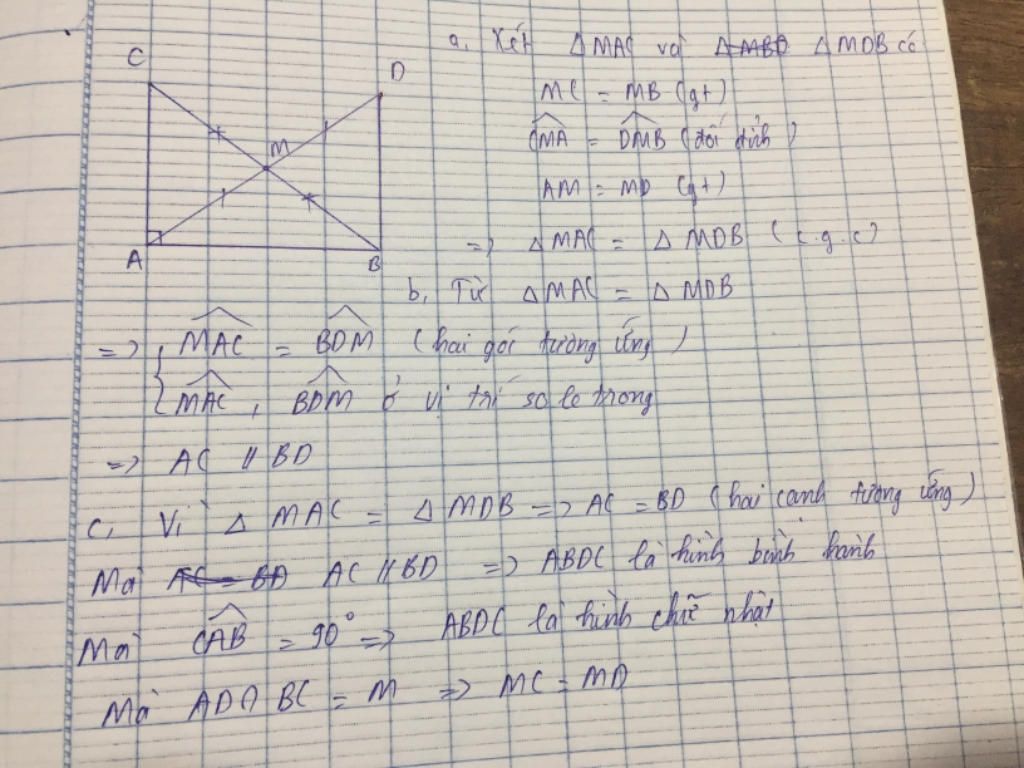 C
D
M
A
B
a, Xét ΔMAC và ΔMBD ΔMDB có
MC = MB (gt)
CMA = DMB (đối đỉnh)
AM = MD (gt)
=> ΔMAC = ΔMDB (c.g.c)
b, Từ ΔMAC = ΔMDB
=> { MAC = BDM (hai góc tương ứng)
MAC, BDM ở vị trí so le trong
=> AC // BD
c, Vì ΔMAC = ΔMDB => AC = BD (hai cạnh tương ứng)
Mà AC = BD AC // BD => ABDC là hình bình hành
Mà CAB = 90° => ABDC là hình chữ nhật
Mà AD∩BC = M => MC = MD